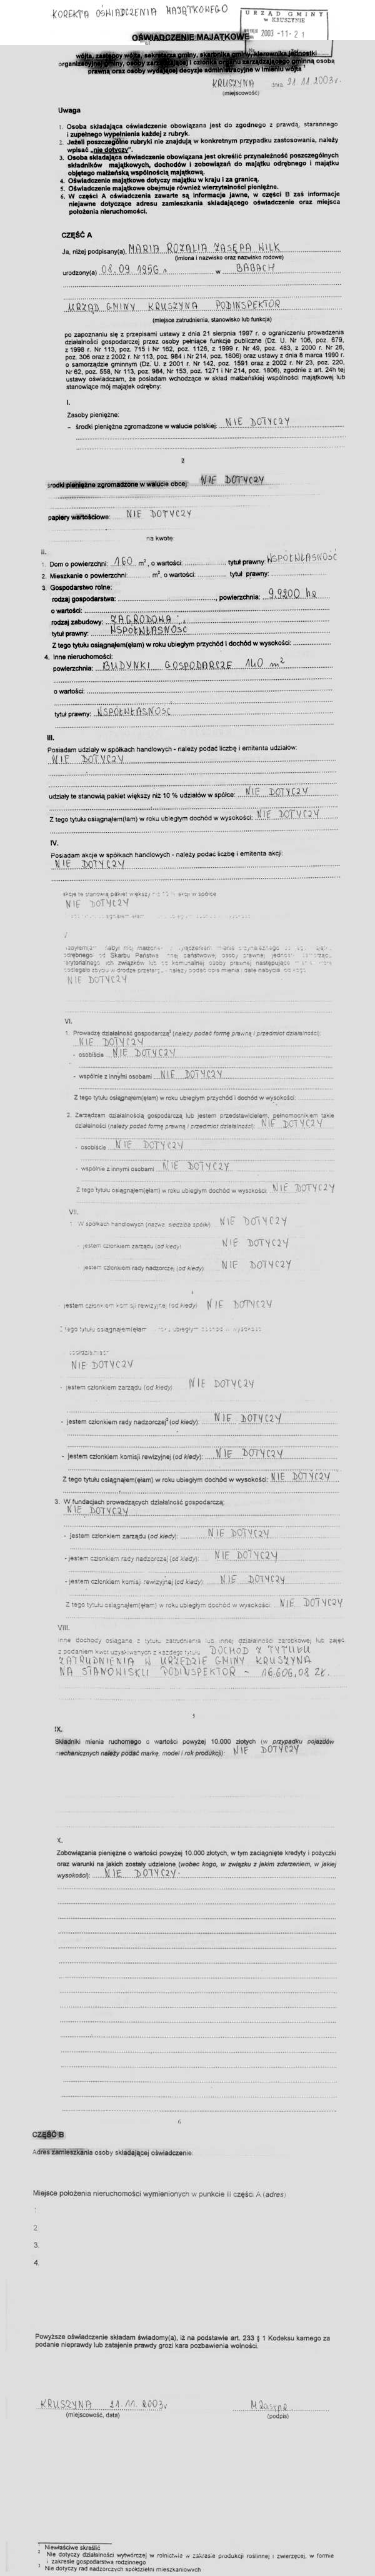 KOREKTA OŚWIADCZENIA MAJĄTKOWEGO
URZĄD GMINY
w KRUSZYNIE
2003 -11- 21
OŚWIADCZENIE MAJĄTKOWE
wójta, zastępcy wójta, sekretarza gminy, skarbnika gminy, kierownika jednostki
organizacyjnej gminy, osoby zarządzającej i członka organu zarządzającego gminną osobą
prawną oraz osoby wydającej decyzje administracyjne w imieniu wójta
KRUSZYNA dnia 21 11 2003 r.
(miejscowość)
Uwaga
1. Osoba składająca oświadczenie obowiązana jest do zgodnego z prawdą, starannego
i zupełnego wypełnienia każdej z rubryk.
2. Jeżeli poszczególne rubryki nie znajdują w konkretnym przypadku zastosowania, należy
wpisać „nie dotyczy”.
3. Osoba składająca oświadczenie obowiązana jest określić przynależność poszczególnych
składników majątkowych, dochodów i zobowiązań do majątku odrębnego i majątku
objętego małżeńską wspólnością majątkową.
4. Oświadczenie majątkowe dotyczy majątku w kraju i za granicą.
5. Oświadczenie majątkowe obejmuje również wierzytelności pieniężne.
6. W części A oświadczenia zawarte są informacje jawne, w części B zaś informacje
niejawne dotyczące adresu zamieszkania składającego oświadczenie oraz miejsca
położenia nieruchomości.
CZĘŚĆ A
Ja, niżej podpisany(a), MARIA ROZALIA ZASĘPA WILK
(imiona i nazwisko oraz nazwisko rodowe)
urodzony(a) 03.09.1956 r. w BABACH
URZĄD GMINY KRUSZYNA PODINSPEKTOR
(miejsce zatrudnienia, stanowisko lub funkcja)
po zapoznaniu się z przepisami ustawy z dnia 21 sierpnia 1997 r. o ograniczeniu prowadzenia
działalności gospodarczej przez osoby pełniące funkcje publiczne (Dz. U. Nr 106, poz. 679,
z 1998 r. Nr 113, poz. 715 i Nr 162, poz. 1126, z 1999 r. Nr 49, poz. 483, z 2000 r. Nr 26,
poz. 306 oraz z 2002 r. Nr 113, poz. 984 i Nr 214, poz. 1806) oraz ustawy z dnia 8 marca 1990 r.
o samorządzie gminnym (Dz. U. z 2001 r. Nr 142, poz. 1591 oraz z 2002 r. Nr 23, poz. 220,
Nr 62, poz. 558, Nr 113, poz. 984, Nr 153, poz. 1271 i Nr 214, poz. 1806), zgodnie z art. 24h tej
ustawy oświadczam, że posiadam wchodzące w skład małżeńskiej wspólności majątkowej lub
stanowiące mój majątek odrębny:
I.
Zasoby pieniężne:
– środki pieniężne zgromadzone w walucie polskiej: NIE DOTYCZY
2
środki pieniężne zgromadzone w walucie obcej: NIE DOTYCZY
papiery wartościowe: NIE DOTYCZY
na kwotę:
II.
1. Dom o powierzchni: 160 m², o wartości: tytuł prawny: WSPÓŁWŁASNOŚĆ
2. Mieszkanie o powierzchni: m², o wartości: tytuł prawny:
3. Gospodarstwo rolne:
rodzaj gospodarstwa: , powierzchnia: 9.9200 ha
o wartości:
rodzaj zabudowy: ZAGRODOWA
tytuł prawny: WSPÓŁWŁASNOŚĆ
Z tego tytułu osiągnąłem(ęłam) w roku ubiegłym przychód i dochód w wysokości:
4. Inne nieruchomości:
powierzchnia: BUDYNKI GOSPODARCZE 140 m²
o wartości:
tytuł prawny: WSPÓŁWŁASNOŚĆ
III.
Posiadam udziały w spółkach handlowych - należy podać liczbę i emitenta udziałów:
NIE DOTYCZY
udziały te stanowią pakiet większy niż 10 % udziałów w spółce: NIE DOTYCZY
Z tego tytułu osiągnąłem(łam) w roku ubiegłym dochód w wysokości: NIE DOTYCZY
IV.
Posiadam akcje w spółkach handlowych - należy podać liczbę i emitenta akcji:
NIE DOTYCZY
akcje te stanowią pakiet większy niż 10 % akcji w spółce
NIE DOTYCZY
V.
NIE DOTYCZY
VI.
1. Prowadzę działalność gospodarczą² (należy podać formę prawną i przedmiot działalności):
NIE DOTYCZY
- osobiście NIE DOTYCZY
- wspólnie z innymi osobami NIE DOTYCZY
Z tego tytułu osiągnąłem(ęłam) w roku ubiegłym przychód i dochód w wysokości:
2. Zarządzam działalnością gospodarczą lub jestem przedstawicielem, pełnomocnikiem takiej
działalności (należy podać formę prawną i przedmiot działalności): NIE DOTYCZY
- osobiście NIE DOTYCZY
- wspólnie z innymi osobami NIE DOTYCZY
Z tego tytułu osiągnąłem(ęłam) w roku ubiegłym dochód w wysokości: NIE DOTYCZY
VII.
1. W spółkach handlowych (nazwa, siedziba spółki): NIE DOTYCZY
- jestem członkiem zarządu (od kiedy): NIE DOTYCZY
- jestem członkiem rady nadzorczej (od kiedy): NIE DOTYCZY
- jestem członkiem komisji rewizyjnej (od kiedy): NIE DOTYCZY
Z tego tytułu osiągnąłem(ęłam) w roku ubiegłym dochód w wysokości:
NIE DOTYCZY
- jestem członkiem zarządu (od kiedy) NIE DOTYCZY
- jestem członkiem rady nadzorczej³ (od kiedy): NIE DOTYCZY
- jestem członkiem komisji rewizyjnej (od kiedy): NIE DOTYCZY
Z tego tytułu osiągnąłem(ęłam) w roku ubiegłym dochód w wysokości: NIE DOTYCZY
3. W fundacjach prowadzących działalność gospodarczą:
NIE DOTYCZY
- jestem członkiem zarządu (od kiedy): NIE DOTYCZY
- jestem członkiem rady nadzorczej (od kiedy): NIE DOTYCZY
- jestem członkiem komisji rewizyjnej (od kiedy): NIE DOTYCZY
Z tego tytułu osiągnąłem(ęłam) w roku ubiegłym dochód w wysokości: NIE DOTYCZY
VIII.
Inne dochody osiągane z tytułu zatrudnienia lub innej działalności zarobkowej lub zajęć,
z podaniem kwot uzyskiwanych z każdego tytułu: DOCHÓD Z TYTUŁU
ZATRUDNIENIA W URZĘDZIE GMINY KRUSZYNA
NA STANOWISKU PODINSPEKTOR – 16.606,08 ZŁ.
5
IX.
Składniki mienia ruchomego o wartości powyżej 10.000 złotych (w przypadku pojazdów
mechanicznych należy podać markę, model i rok produkcji): NIE DOTYCZY
X.
Zobowiązania pieniężne o wartości powyżej 10.000 złotych, w tym zaciągnięte kredyty i pożyczki
oraz warunki na jakich zostały udzielone (wobec kogo, w związku z jakim zdarzeniem, w jakiej
wysokości): NIE DOTYCZY
6
CZĘŚĆ B
Adres zamieszkania osoby składającej oświadczenie:
Miejsce położenia nieruchomości wymienionych w punkcie II części A (adres):
1.
2.
3.
4.
Powyższe oświadczenie składam świadomy(a), iż na podstawie art. 233 § 1 Kodeksu karnego za
podanie nieprawdy lub zatajenie prawdy grozi kara pozbawienia wolności.
KRUSZYNA 21.11.2003r
(miejscowość, data)
(podpis)
¹ Niewłaściwe skreślić
² Nie dotyczy działalności wytwórczej w rolnictwie w zakresie produkcji roślinnej i zwierzęcej, w formie
i zakresie gospodarstwa rodzinnego
³ Nie dotyczy rad nadzorczych spółdzielni mieszkaniowych